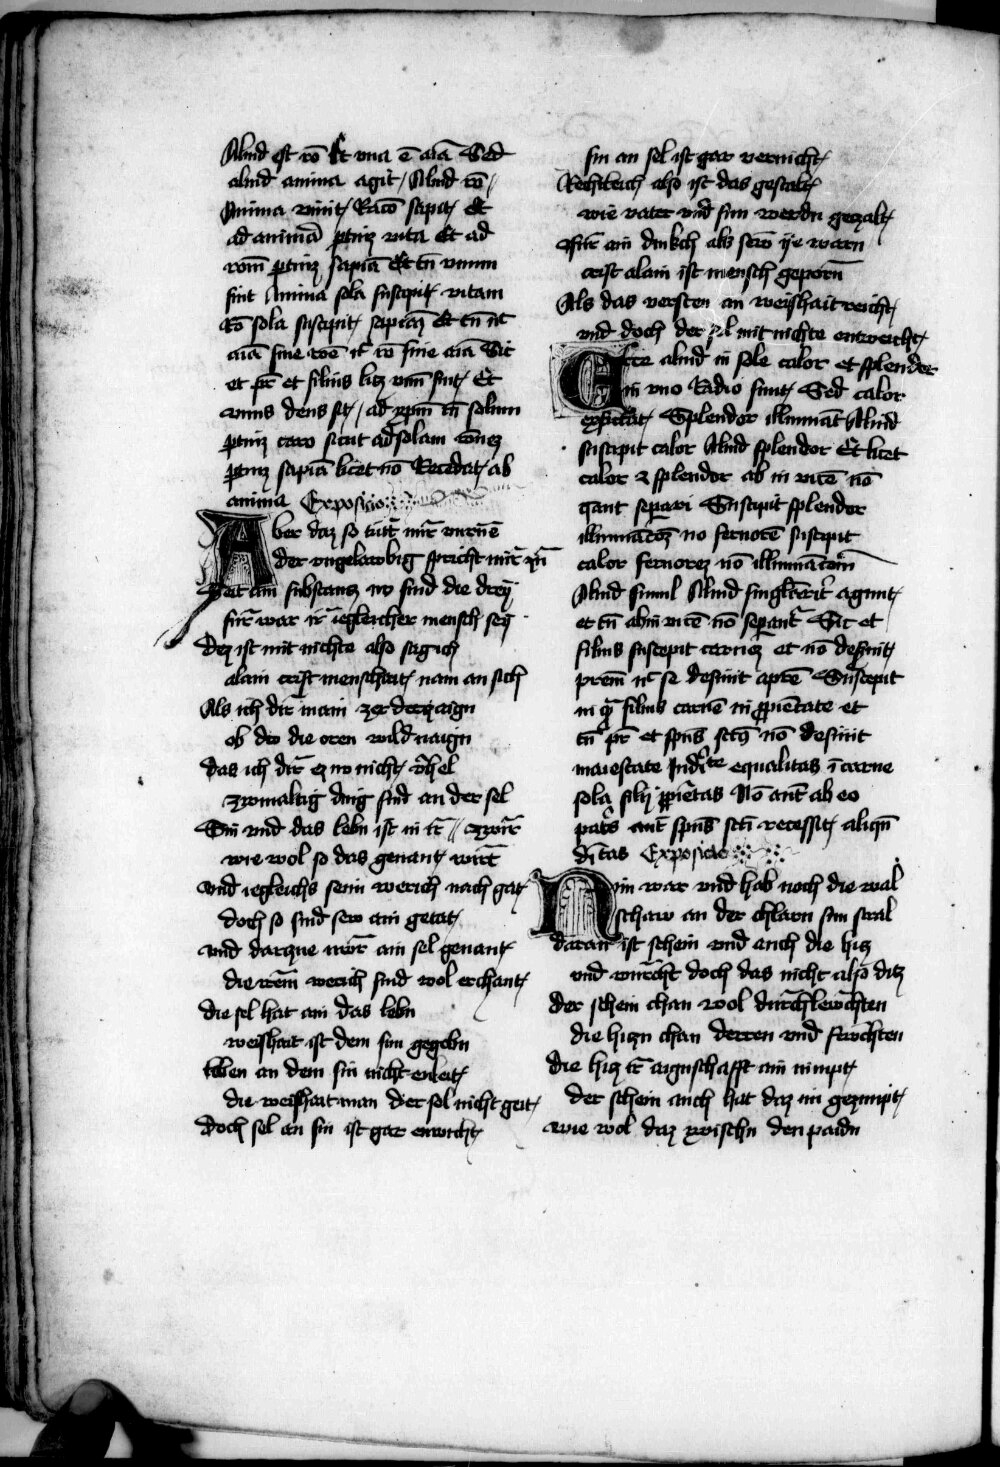 Aliud est ro Et una e aīa Sed
aliud anima agit / Aliud ro /
Anima vivit / Raco sapit / Et
ad animā ptinz vita Et ad
rom ptinz sapiā Et tn unum
sint Anima sola suscipit vitam
Ro sola suscipit sapiaz Et tn nc
aīa sine roe nc ro sine aīa Sic
et pr et filius licz unū sint Et
unus deus sit / ad xpm tn solum
ptinz caro sicut ad solam
ptinz sapiā licet nō Recedat ab
anima Exposicio
Aber daz so tutt mir
der ungelawbig spricht mir
Seit ain substancz no sind die drey
fur war ir iegleicher mensch sey
Dez ist mit nichte also sag ich
alain crist menschait nam an sich
Als ich dir main zer derczaign
ob dw die oren wild naign
das ich dir ez no nicht
zwivaltig ding sind an der sel
Sin und das lebn ist in ir
wie wol so das genant wirt
und iegleichs seim werich nach gat
doch so sind sew ain getat
und darczue wör ain sel genant
die werich sind wol erchant
die sel hat ain das lebn
weishait ist dem sin gegebn
an dem sin nicht
die weishait man der sel nicht geit
doch sel an sin ist gar enwicht
sin an sel ist gar vernicht
Rechtleich also ist das gestalt
wie vater und sun werdn geczalt
fur ain dinkch als sew ye warn
crist alain ist mensch geporn
Als das versten an weishait reicht
und doch der sel mit nichte entweicht
Ecce aliud in sole calor et splendor
in uno Radio sunt / Sed calor
exsiccat Splendor illuminat Aliud
suscipit calor Aliud splendor Et licet
calor z splendor ab in vicē nō
qant separi Suscipit splendor
illuminacōz no fervorē suscipit
calor fervorez nō illuminacōm
Aliud simul Aliud singlarit agunt
et tn abin vicē nō sepant Sic et
filius suscepit carnez et nō desinit
prem nc se desinit a prē Suscepit
in qa filius carnē in ppietate et
tn pr et spūs scūs nō desinit
maiestate equalitas ī carne
sola filij ppietas Nō aut ab eo
patis aut spūs scti recessit aliqn
ditas Exposicio
Nim war und hab noch die wal
schaw an der chlarn sun stral
daran ist schein und auch die hicz
und doch das nicht also ditz
der schein chan wol durchlewchten
die hiczn chan derren und fewchten
die hicz ir aignschafft ain nimpt
der schein auch hat daz im gezimpt
wie wol daz zwischn den paidn